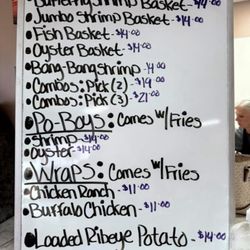 • Butterfly Shrimp Basket - $14.00
• Jumbo Shrimp Basket - $14.00
• Fish Basket - $14.00
• Oyster Basket - $14.00
• Bang-Bang Shrimp - 14.00
• Combos: Pick (2) - $19.00
• Combos: Pick (3) - $21.00
• Po-Boys: Comes w/ Fries
• Shrimp - $14.00
• Oyster - $14.00
• Wraps: Comes w/ Fries
• Chicken Ranch - $11.00
• Buffalo Chicken - $11.00
• Loaded Ribeye Potato - $14.00